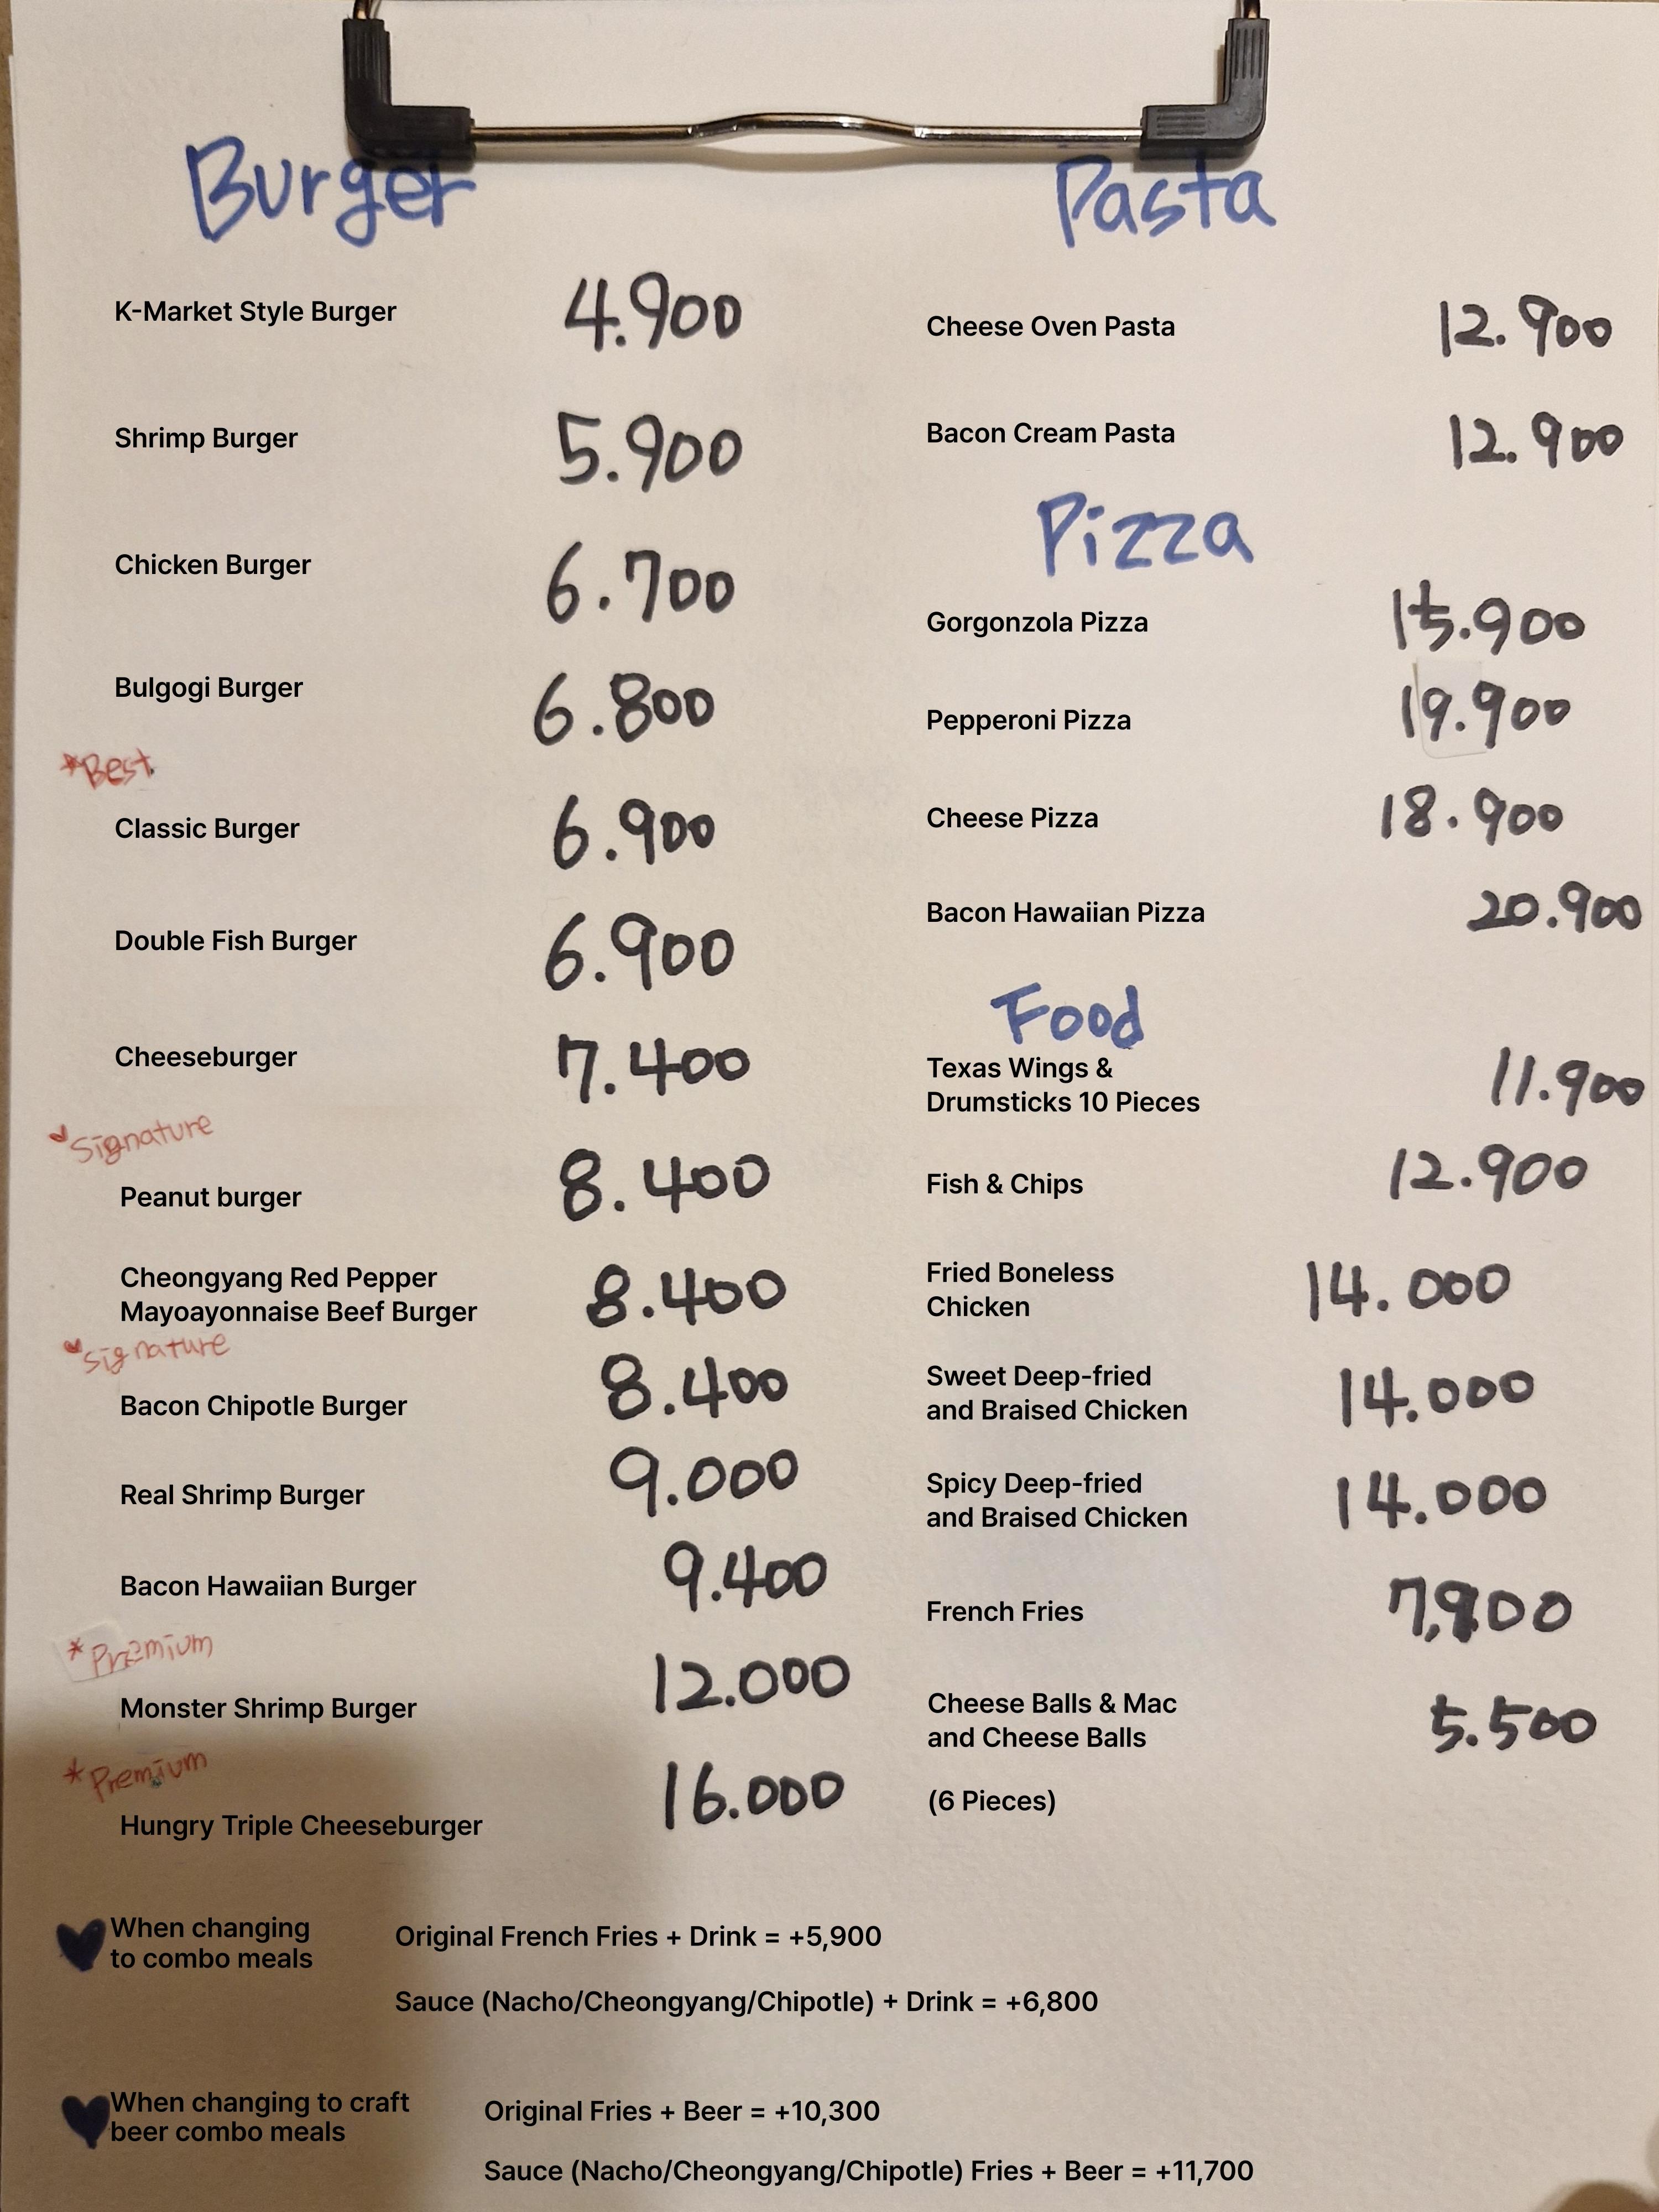 Burger
K-Market Style Burger 4.900
Shrimp Burger 5.900
Chicken Burger 6.700
Bulgogi Burger 6.800
*Best
Classic Burger 6.900
Double Fish Burger 6.900
Cheeseburger 7.400
Signature
Peanut burger 8.400
Cheongyang Red Pepper
Mayoayonnaise Beef Burger 8.400
Signature
Bacon Chipotle Burger 8.400
Real Shrimp Burger 9.000
Bacon Hawaiian Burger 9.400
*Premium
Monster Shrimp Burger 12.000
*Premium
Hungry Triple Cheeseburger 16.000
Pasta
Cheese Oven Pasta 12.900
Bacon Cream Pasta 12.900
Pizza
Gorgonzola Pizza 15.900
Pepperoni Pizza 19.900
Cheese Pizza 18.900
Bacon Hawaiian Pizza 20.900
Food
Texas Wings &
Drumsticks 10 Pieces 11.900
Fish & Chips 12.900
Fried Boneless
Chicken 14.000
Sweet Deep-fried
and Braised Chicken 14.000
Spicy Deep-fried
and Braised Chicken 14.000
French Fries 7,900
Cheese Balls & Mac
and Cheese Balls 5.500
(6 Pieces)
When changing
to combo meals
Original French Fries + Drink = +5,900
Sauce (Nacho/Cheongyang/Chipotle) + Drink = +6,800
When changing to craft
beer combo meals
Original Fries + Beer = +10,300
Sauce (Nacho/Cheongyang/Chipotle) Fries + Beer = +11,700